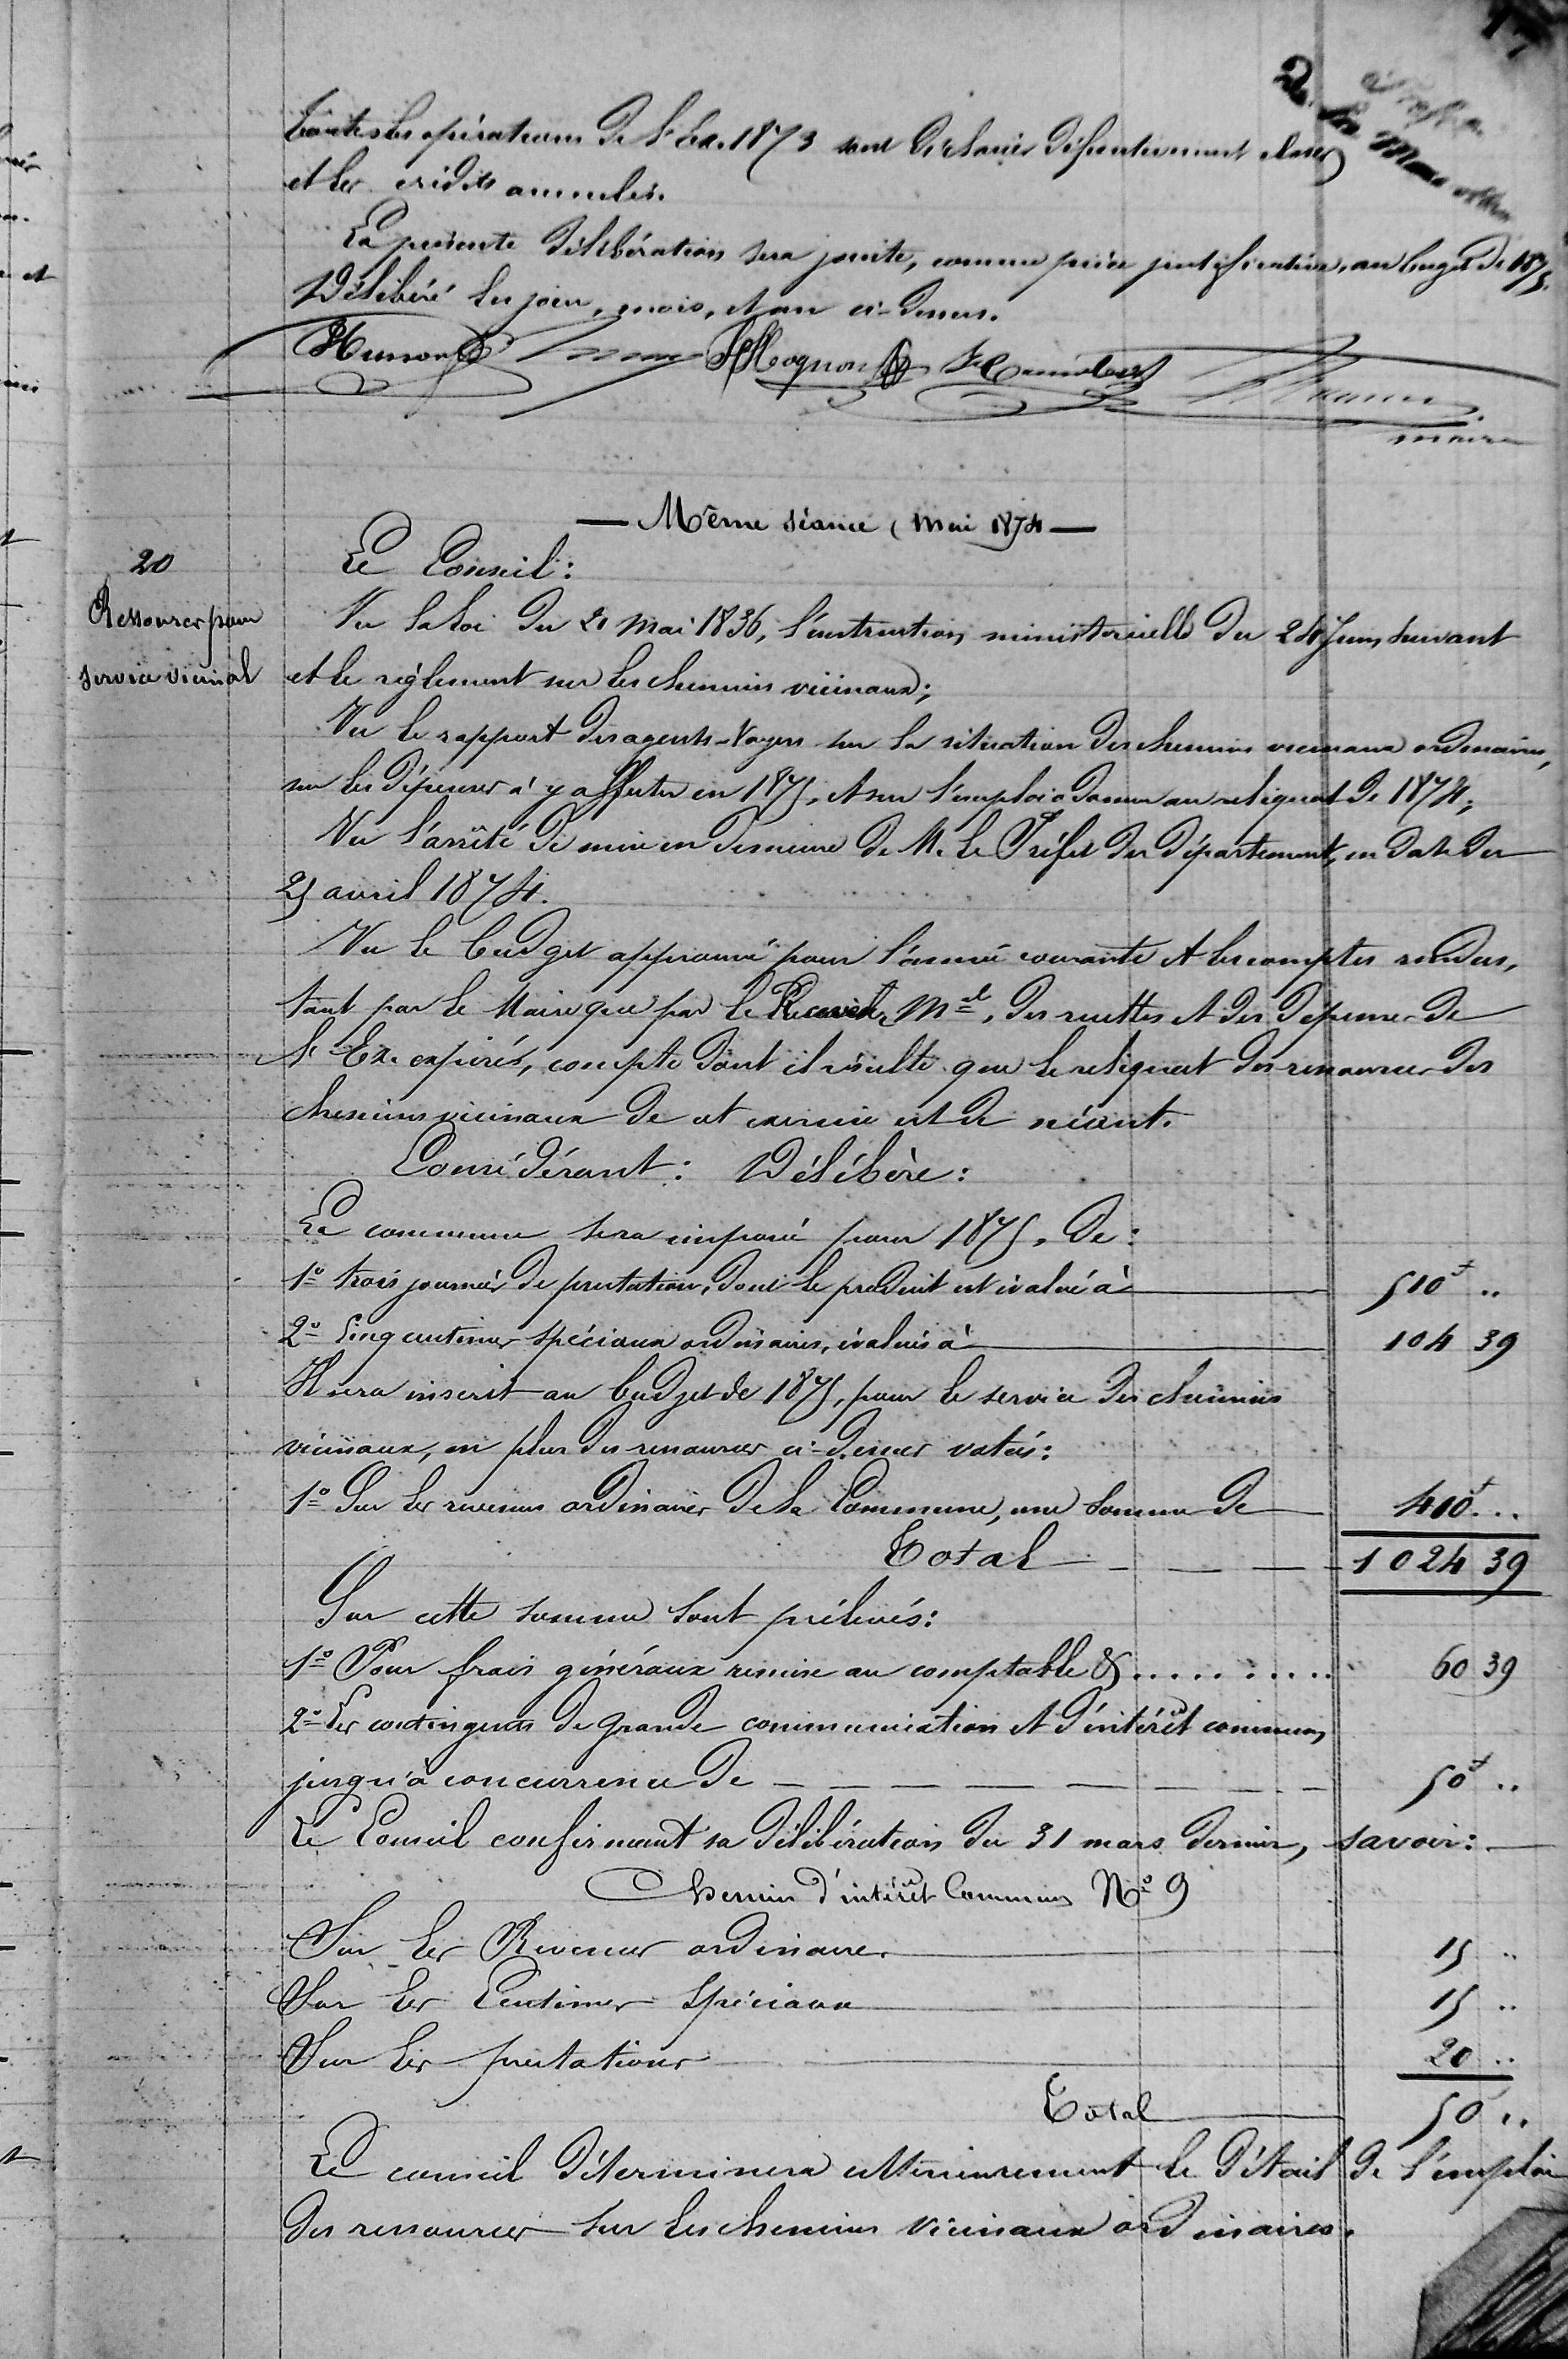 17
toutes les opérations de l'Ex. 1873 sont déclarées définitivement closes
et les crédits annulés.
La présente délibération sera jointe, comme pièce justificative, au budget de 1875.
Délibéré les jour, mois, et an ci-dessus.
maire
— Même séance (mai 1874 —
20
Ressources pour
service vicinal
Le Conseil :
Vu la loi du 21 mai 1836, l'instruction ministérielle du 24 Juin suivant
et le règlement sur les chemins vicinaux ;
Vu le rapport des agents-Voyers sur la situation des chemins vicinaux ordinaires,
sur les dépenses à y affecter en 1875, et sur l'emploi à donner au reliquat de 1874 ;
Vu l'arrêté de mise en demeure de M. le Préfet du département, en date du
25 avril 1874.
Vu le budget approuvé pour l'année courante et les comptes rendus,
tant par le Maire que par le Receveur Mal, des recettes et des dépenses de
l'Ex. expiré, compte dont il résulte que le reliquat des ressources des
chemins vicinaux de cet exercice est de néant.
Considérant : Délibère :
La commune sera imposée pour 1875, de :
1º trois journées de prestation, dont le produit est évalué à — 510f ..
2º Cinq centimes spéciaux ordinaires, évalués à — 104 39
Il sera inscrit au budget de 1875, pour le service des chemins
vicinaux, en plus des ressources ci-dessus votées :
1º Sur les revenus ordinaires de la Commune, une somme de — 410f ...
Total — — — 1024 39
Sur cette somme sont prélevés :
1º Pour frais généraux remise au comptable & .......... 60 39
2º Les contingents de grande communication et d'intérêt commun,
jusqu'à concurrence de — — — — — — — — 50f ..
Le Conseil confirmant sa délibération du 31 mars dernier, savoir : —
Chemin d'intérêt Commun Nº 9
Sur les Revenus ordinaires — 15 ..
Sur les Centimes spéciaux — 15 ..
Sur les prestations — 20 ..
Total — 50 ..
Le conseil déterminera ultérieurement le détail de l'emploi
des ressources sur les chemins vicinaux ordinaires.